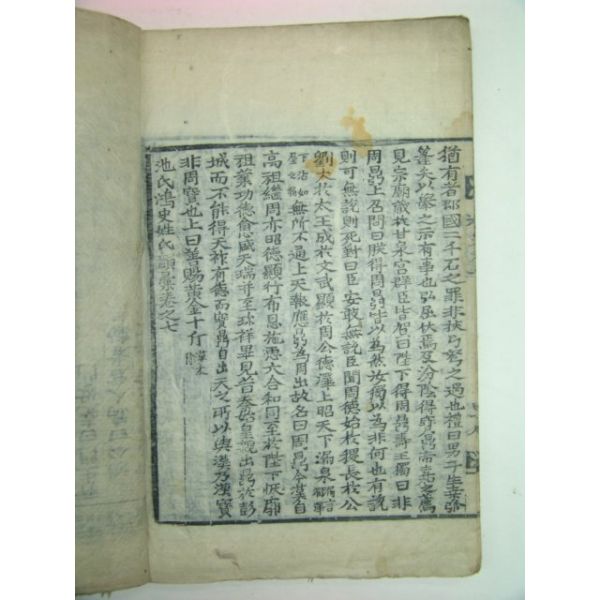 猶有者郡國二千石之罪非挾弓弩之過也禮曰男子生桑弧
蓬矢以擧之示有事也弘
見宗廟藏於甘泉宮群臣皆賀曰陛下得周鼎壽王獨曰非
周鼎上召問曰朕得周鼎皆以爲然汝獨以爲非何也有說
則可無說則死對曰臣安敢無說臣聞周德始於后稷長於公
劉大於太王成於文武顯於周公德澤上昭天下漏泉
無所不通上天報應鼎爲周出故名曰周鼎今漢自
高祖繼周亦昭德顯行布恩施惠六合和同至於陛下恢廓
祖業功德愈盛天瑞並至珍祥畢見昔秦始皇親出鼎於彭
城而不能得天祚有德而寶鼎自出天之所以與漢乃漢寶
非周寶也上曰善賜黃金十斤
池氏鴻史姓氏 卷之七